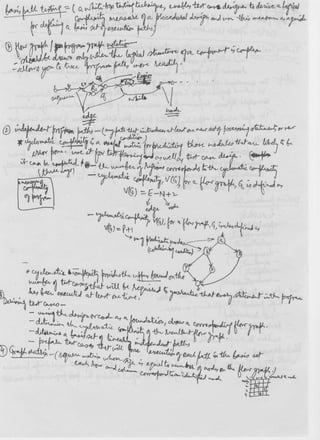 basis path testing = (a white-box testing technique, enables test case designer to derive a logical
complexity measure of a procedural design and use this measure as a guide
for defining a basis set of execution paths)
① flow graph / program graph notation
- should be drawn only when the logical structure of a component is complex
- allows you to trace program paths more readily.
sequence
if
while
edge
node
② independent program paths - (any path that introduces at least one new set of processing statements or new
condition)
* cyclomatic complexity is a useful metric for predicting those modules that are likely to be
error prone. use it for test planning as well as test case design.
it can be computed
(three ways)
- the number of regions corresponds to the cyclomatic complexity
- cyclomatic complexity, V(G) for a flow graph, G is defined as
V(G) = E - N + 2
edges
nodes
complexity
of program
- cyclomatic complexity, V(G), for a flow graph, G, is also defined as
V(G) = P + 1
predicate nodes
(containing condition)
* cyclomatic complexity provides the upper bound on the
number of test cases that will be required to guarantee that every statement in the program
has been executed at least one time.
Deriving test cases -
- using the design or code as a foundation, draw a corresponding flow graph.
- determine the cyclomatic complexity of the resultant flow graph.
- determine a basis set of linearly independent paths
- prepare test cases that will force execution of each path in the basis set
④ Graph matrix - (square matrix whose size is equal to number of nodes on the flow graph)
each row and column corresponds to an identified node